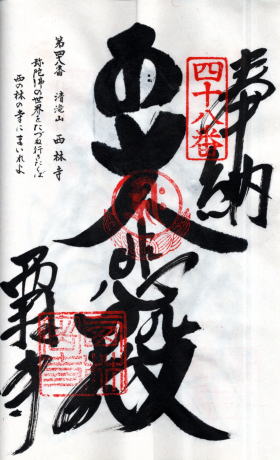 奉納
四十八番
大悲殿
西林寺
第四十八番 清滝山 西林寺
弥陀佛の世界をたづね行きたくば
西の林の寺にまいれよ